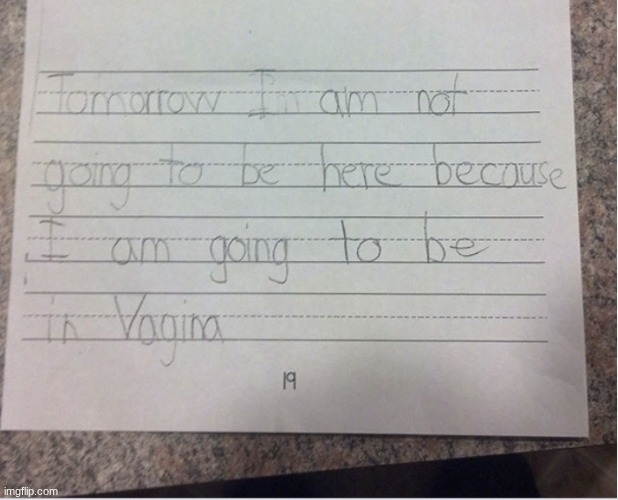 Tomorrow I am not
going to be here because
I am going to be
in Vagina
19
imgflip.com